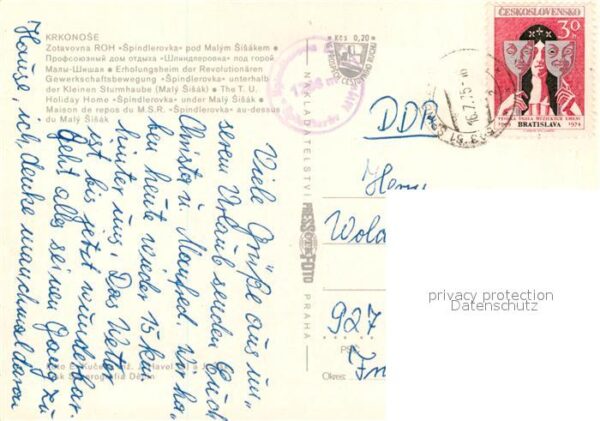 KRKONOŠE
Zotavovna ROH «Špindlerovka» pod Malým Šišákem •
Профсоюзный дом отдыха «Шпиндлеровка» под горой
Малы-Шишак • Erholungsheim der Revolutionären
Gewerkschaftsbewegung «Špindlerovka» unterhalb
der Kleinen Sturmhaube (Malý Šišák) • The T. U.
Holiday Home «Špindlerovka» under Malý Šišák •
Maison de repos du M.S.R. «Špindlerovka» au-dessus
du Malý Šišák
Viele Grüße aus un-
serem Urlaub senden Euch
Christa u. Manfred. Wir ha-
ben heute wieder 15 km
hinter uns. Das Wetter
ist bis jetzt wunderbar.
Geht alles seinen Gang zu
Hause, ich denke manchmal daran
Kčs 0,20
NAKLADATELSTVÍ
PRESS
FOTO
PRAHA
ČESKOSLOVENSKO
30 h
VYSOKÁ ŠKOLA MÚZICKÝCH UMENÍ
1949 BRATISLAVA 1974
16.7.75
DDR
927
PSČ
Okres:
privacy protection
Datenschutz